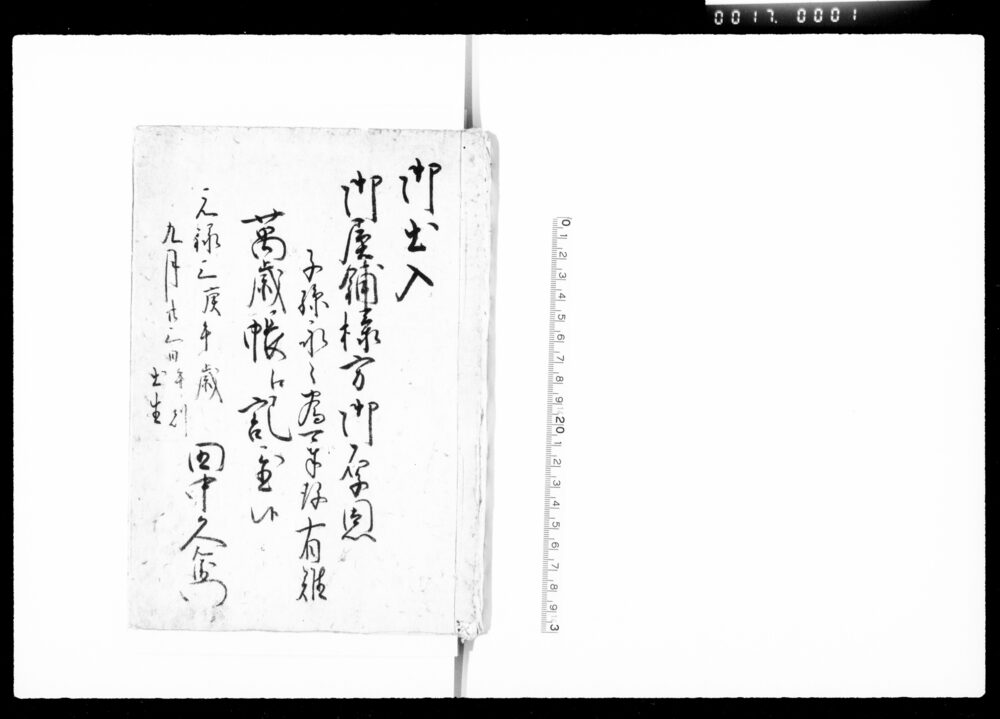 0017. 0001
御出入
御屋鋪様方御厚恩
子孫永々為 有難
萬歳帳ニ記置候
元禄三庚午歳
九月廿三日午刻
出生
田中久兵衛
0 1 2 3 4 5 6 7 8 9 20 1 2 3 4 5 6 7 8 9 3